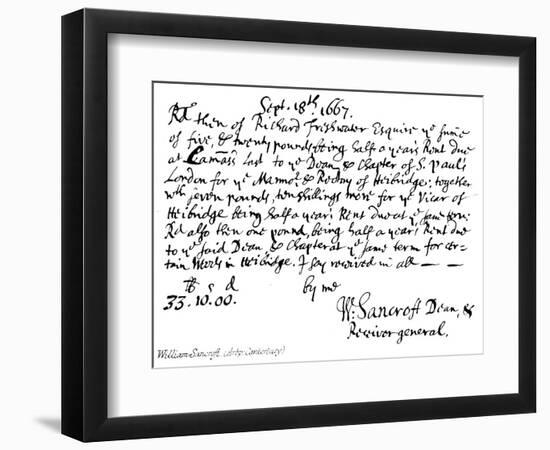 Sept. 18th. 1667.
Rd. then of Richard Freshwater Esquire ye summe
of five, & twenty pounds, being half a year's Rent due
at Lammass last to ye Dean, & Chapter of S. Paul's
London for ye Mannor. & Rectory of Heibridge: together
with seven pounds, ten shillings more for ye Vicar of
Heibridge being half a year's Rent due at ye same term:
Rd also then one pound, being half a year's Rent due
to ye said Dean, & Chapter at ye same term for cer-
tain Woods in Heibridge. I say received in all — —
lb s d by me
33.10.00.
W. Sancroft Dean, &
Receiver general.
William Sancroft. (Arbp. Canterbury)